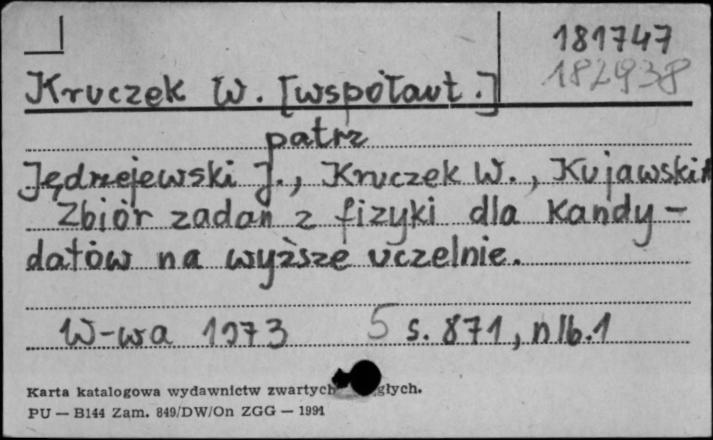 181747
182938
Kruczek W. [współaut.]
patrz
Jędrzejewski J., Kruczek W., Kujawski A
Zbiór zadań z fizyki dla Kandy-
datów na wyższe uczelnie.
W-wa 1973 5 s. 871, nlb. 1
Karta katalogowa wydawnictw zwartych głych.
PU — B144 Zam. 849/DW/On ZGG — 1991